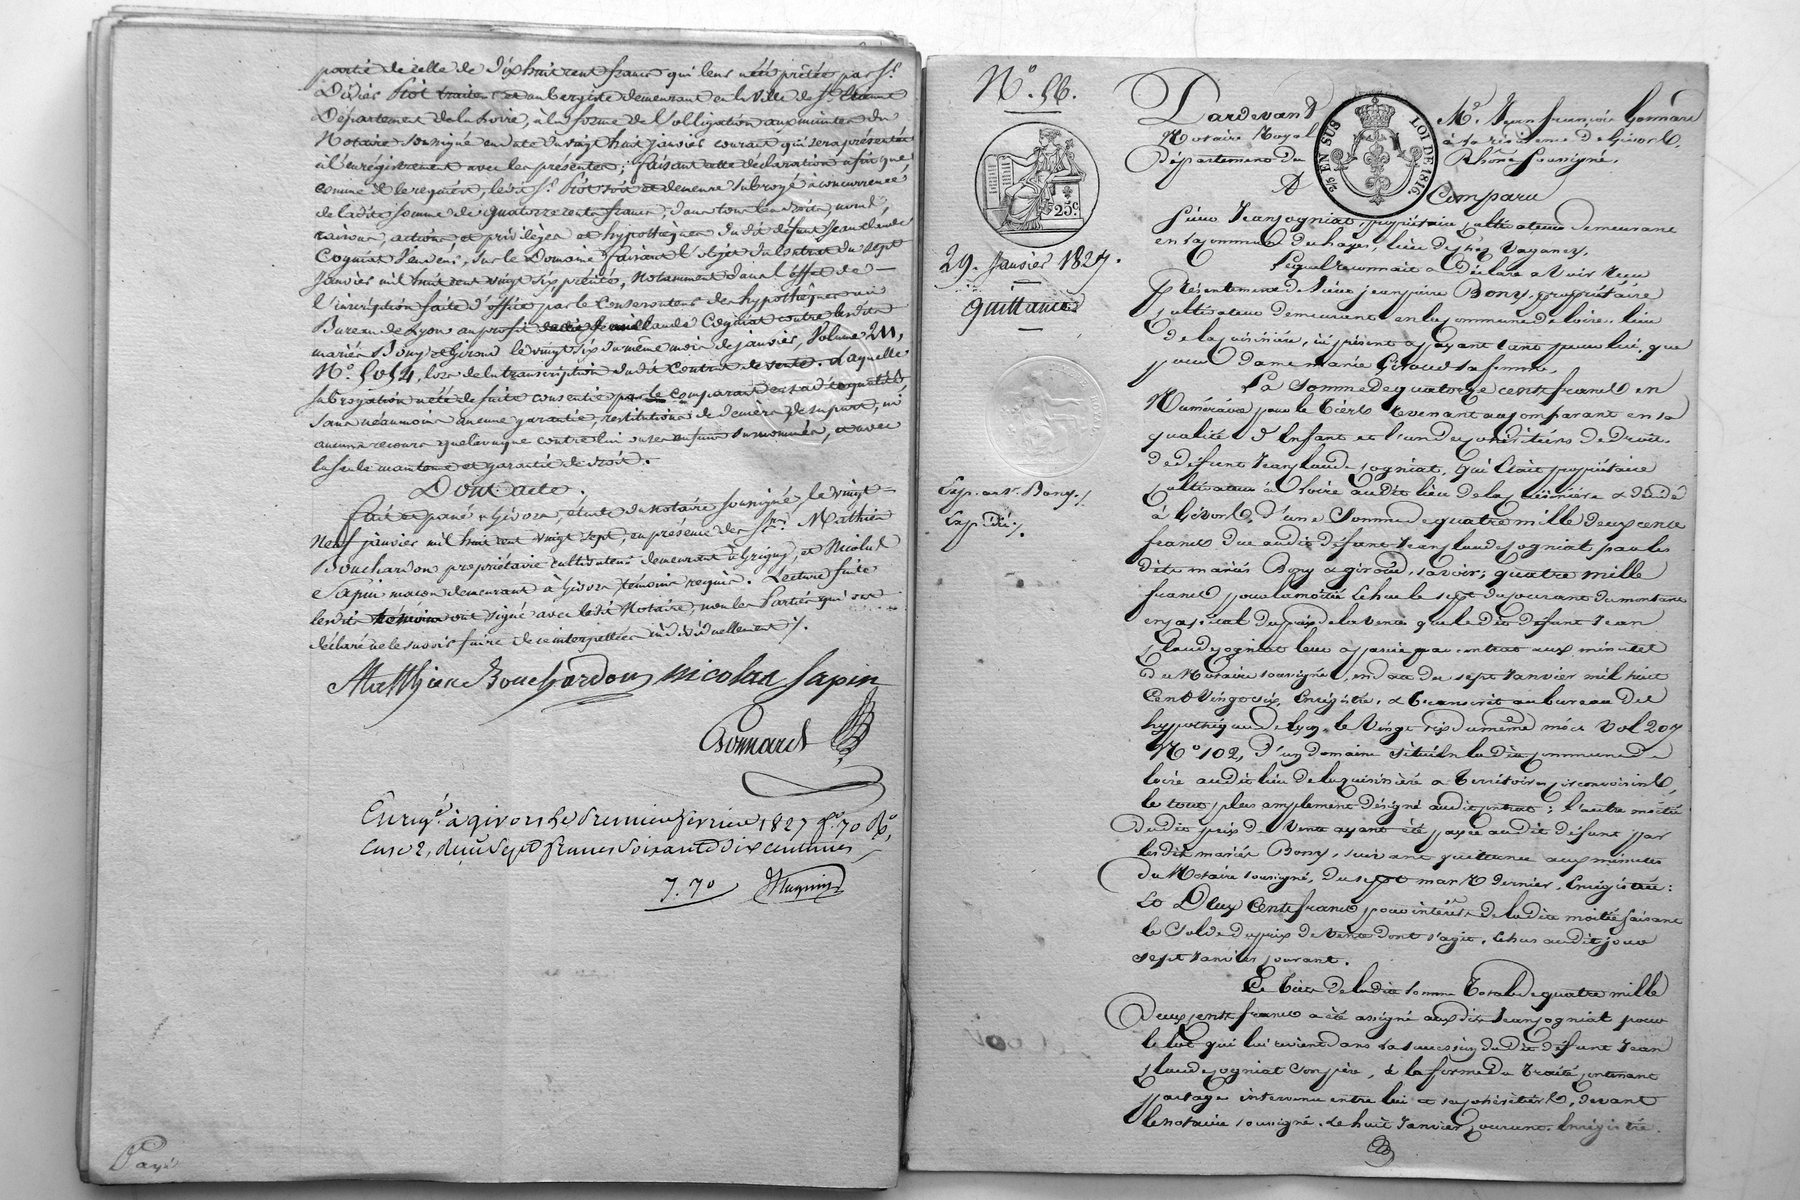 partie de celle de dix huit cent francs qui leur a été prêtée par Sr.
Didier Piot traiteur et aubergiste demeurant en la Ville de St. Etienne
Département de la Loire, à la forme de l'obligation aux minutes du
Notaire soussigné en date du vingt huit janvier courant qui sera présentée
à l'enregistrement avec les présentes; faisant cette déclaration afin que
comme il le requiert, ledit Sr. Piot soit et demeure subrogé à concurrence
de ladite somme de quatorze cents francs, dans tous les droits, noms,
raisons, actions et privilèges et hypothèques dudit défunt Jean Claude
Cogniat vendeur, sur le Domaine faisant l'objet du Contrat du sept
Janvier mil huit cent vingt six précité, notamment dans l'effet de
l'inscription faite d'office par le Conservateur des hypothèques au
Bureau de Lyon au profit Claude Cogniat contre lesdits
mariés Bony et Giroud le vingt six du même mois de janvier, Volume 211,
No. 5054, lors de la transcription dudit Contrat de vente. Laquelle
subrogation a été de suite consentie par le comparant en sa dite qualité,
sans néanmoins aucune garantie, restitution de deniers de sa part, ni
aucun recours quelconque contre lui ou ses enfans susnommés, et avec
la seule maintenue et garantie de droit.
Dont acte.
fait et passé à Givors, étude du notaire soussigné, le vingt
neuf janvier mil huit cent vingt sept, en présence des Srs. Mathieu
Bouchardon propriétaire cultivateur demeurant à Grigny, et Nicolas
Sapin maçon demeurant à Givors témoins requis. Lecture faite
lesdits témoins ont signé avec ledit Notaire, non les Parties qui ont
déclaré ne le savoir faire de ce interpellées individuellement ./.
Matthieu Bouchardon nicolas Sapin
Gonnard
Enregé. à givors le Premier février 1827 fo. 70 Ro.
Case 2, reçu Sept francs Soixante dix centimes
7. 70
Payé
No. 56.
25c.
29. Janvier 1827.
Quittance
Exp. au Sr. Bony ./
Expédié ./.
25 EN SUS
LOI DE 1816.
Pardevant Me. Jean françois Gonnard
Notaire Royal à la résidence de Givors,
Département du Rhône soussigné,
A Comparu
Sieur Jean Cogniat, propriétaire cultivateur demeurant
en la Commune des hayes, lieu de chez
Lequel reconnait et déclare avoir reçu
Présentement de Sieur jean pierre Bony, propriétaire
cultivateur demeurant en la commune de loire, lieu
de la , ici présent et payant tant pour lui que
pour Dame marie Giroud sa femme,
La Somme de quatorze cents francs en
Numéraire pour le tiers revenant au comparant en sa
qualité d'Enfant et l'un des cohéritiers de Droit
de défunt Jean Claude Cogniat, qui était propriétaire
cultivateur à Loire audit lieu de la et décédé
à Givors, d'une Somme de quatre mille deux cents
francs due audit défunt Jean Claude Cogniat par les
dits mariés Bony et giroud, savoir; quatre mille
francs pour la moitié échue le sept du courant du montant
en capital du prix de la vente que le dit défunt Jean
Claude Cogniat leur a passée par contrat aux minutes
du Notaire soussigné, en date du sept Janvier mil huit
Cent Vingt six, Enregistré, et transcrit au bureau des
hypothèques de Lyon, le vingt six du même mois Vol 207
No 102, d'un domaine situé en la dite commune de
loire audit lieu de la et territoires circonvoisins,
le tout plus amplement désigné audit contrat; l'autre moitié
Dudit prix de Vente ayant été payée audit défunt par
lesdits mariés Bony, suivant quittance aux minutes
du Notaire soussigné, du sept mars dernier, Enregistrée:
Et Deux Cents francs pour intérêts de ladite moitié faisant
le Solde du prix de vente dont s'agit, échus audit jour
sept Janvier courant.
Le tiers de ladite somme Totale de quatre mille
Deux cents francs a été assigné audit Jean Cogniat pour
le lot qui lui revient dans la succession dudit défunt Jean
Claude Cogniat Son père, à la forme du Traité contenant
partage intervenu entre lui et ses cohéritiers, devant
le notaire soussigné, le huit Janvier courant, Enregistré.